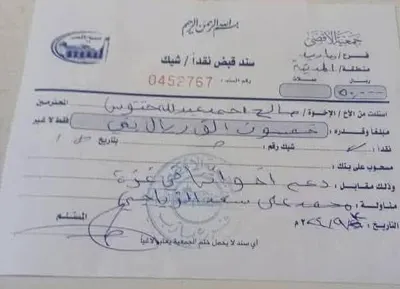 بسم الله الرحمن الرحيم
جمعية الأقصى
فرع / مأرب
منطقة / المدينة
سند قبض نقداً / شيك
رقم السند : 0452767
ريال
٥٠,٠٠٠
استلمت من الأخ / الإخوة / صالح احمد عبدالله المحترمين
مبلغاً وقدره : خمسون الف ريال فقط لا غير
نقداً : شيك رقم : بتاريخ
مسحوب على بنك :
وذلك مقابل : دعم اخواننا في غزة
مناولة / محمد علي سعد
التاريخ : المستلم
أي سند لا يحمل ختم الجمعية يعتبر لاغياً